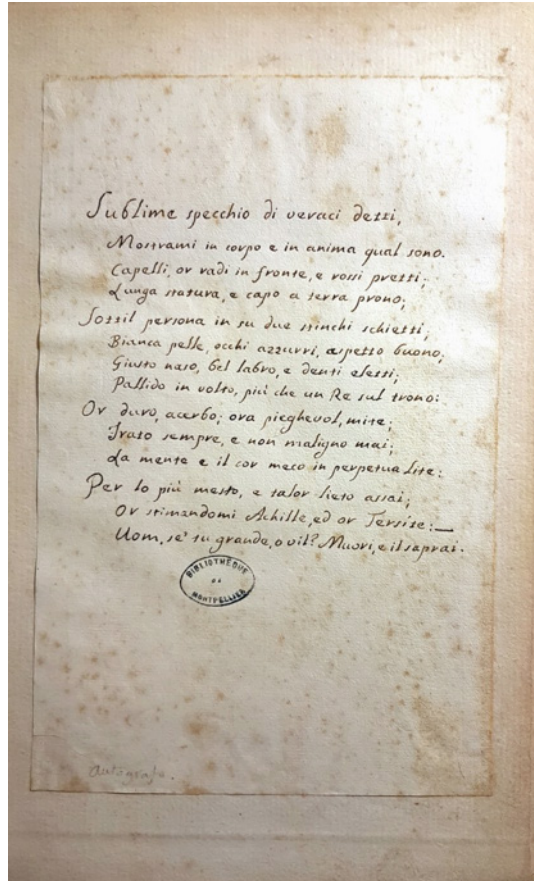 Sublime specchio di veraci detti,
Mostrami in corpo e in anima qual sono.
Capelli, or radi in fronte, e rossi pretti;
Lunga statura, e capo a terra prono;
Sottil persona in su due stinchi schietti;
Bianca pelle, occhi azzurri, aspetto buono;
Giusto naso, bel labro, e denti eletti;
Pallido in volto, più che un Re sul trono:
Or duro, acerbo; ora pieghevol, mite;
Irato sempre, e non maligno mai;
La mente e il cor meco in perpetua lite:
Per lo più mesto, e talor lieto assai;
Or stimandomi Achille, ed or Tersite:—
Uom, se' tu grande, o vil? Muori, e il saprai.
BIBLIOTHÈQUE
DE
MONTPELLIER
autografo.